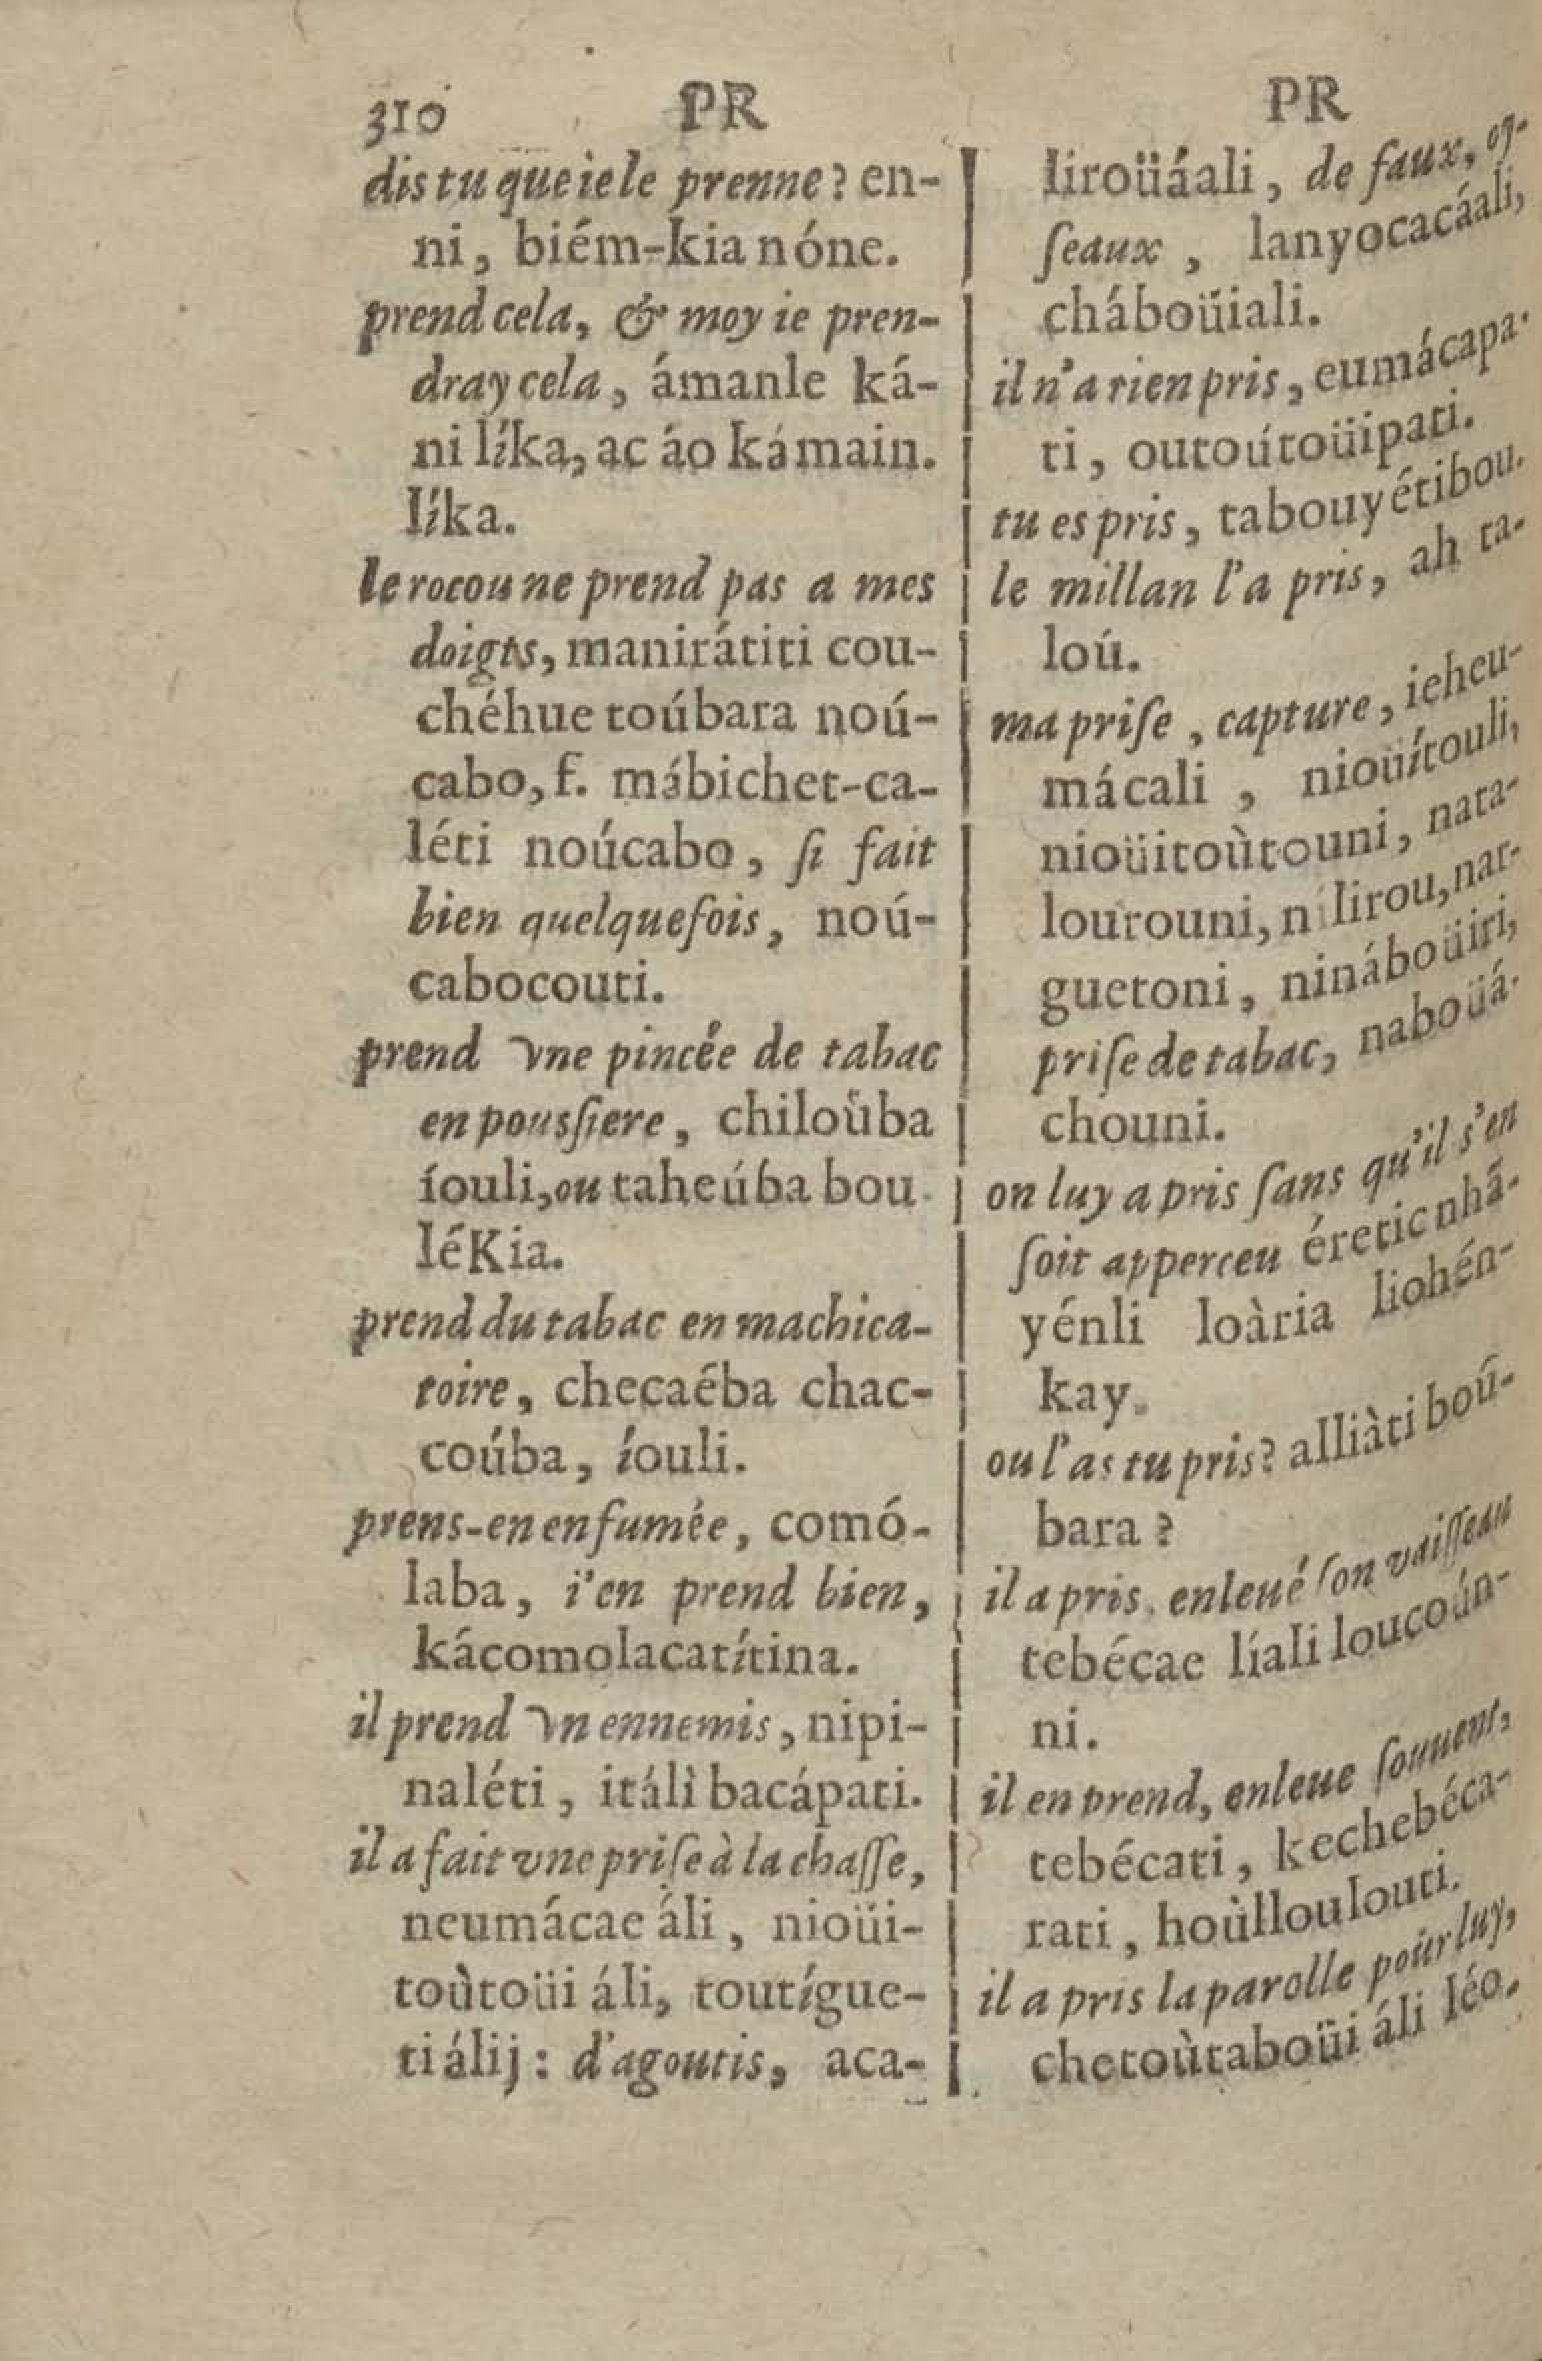 310 PR PR
dis tu que ie le prenne? en-
ni, biém-kia nóne.
prend cela, & moy ie pren-
dray cela, ámanle ká-
ni líka, ac áo kámain.
líka.
le rocou ne prend pas a mes
doigts, manirátiti cou-
chéhue toúbara noú-
cabo, f. mábichet-ca-
léti noúcabo, ſi fait
bien quelquefois, noú-
cabocouti.
prend vne pincée de tabac
en pousſiere, chiloúba
íouli, ou taheúba bou
léKia.
prend du tabac en machica-
toire, checaéba chac-
coúba, íouli.
prens-en en fumée, comó-
laba, i'en prend bien,
kácomolacatítina.
il prend vn ennemis, nipi-
naléti, itálì bacápati.
il a fait vne priſe à la chaſſe,
neumácae áli, nioüi-
toùtoüi áli, toutígue-
ti álij: d'agoutis, aca-
liroüáali, de faux, oy-
ſeaux, lanyocacáali,
cháboüiali.
il n'a rien pris, eumácapa-
ti, outoútoüipati.
tu es pris, tabouyétibou.
le millan l'a pris, ah ta-
loú.
ma priſe, capture, ieheu-
mácali, nioüítouli,
nioüitoùtouni, nata-
lourouni, n lirou, nar-
guetoni, nináboüiri,
priſe de tabac, naboüá-
chouni.
on luy a pris ſans qu'il s'en
ſoit apperceu éretic nhá-
yénli loària liohén-
kay.
ou l'as tu pris? alliàti boú-
bara?
il a pris, enleué ſon vaiſſeau
tebécae líali loucoún-
ni.
il en prend, enleue ſouuent,
tebécati, kechebéca-
rati, hoùlloulouti.
il a pris la parolle pour luy,
chetoùtaboüi áli léo.